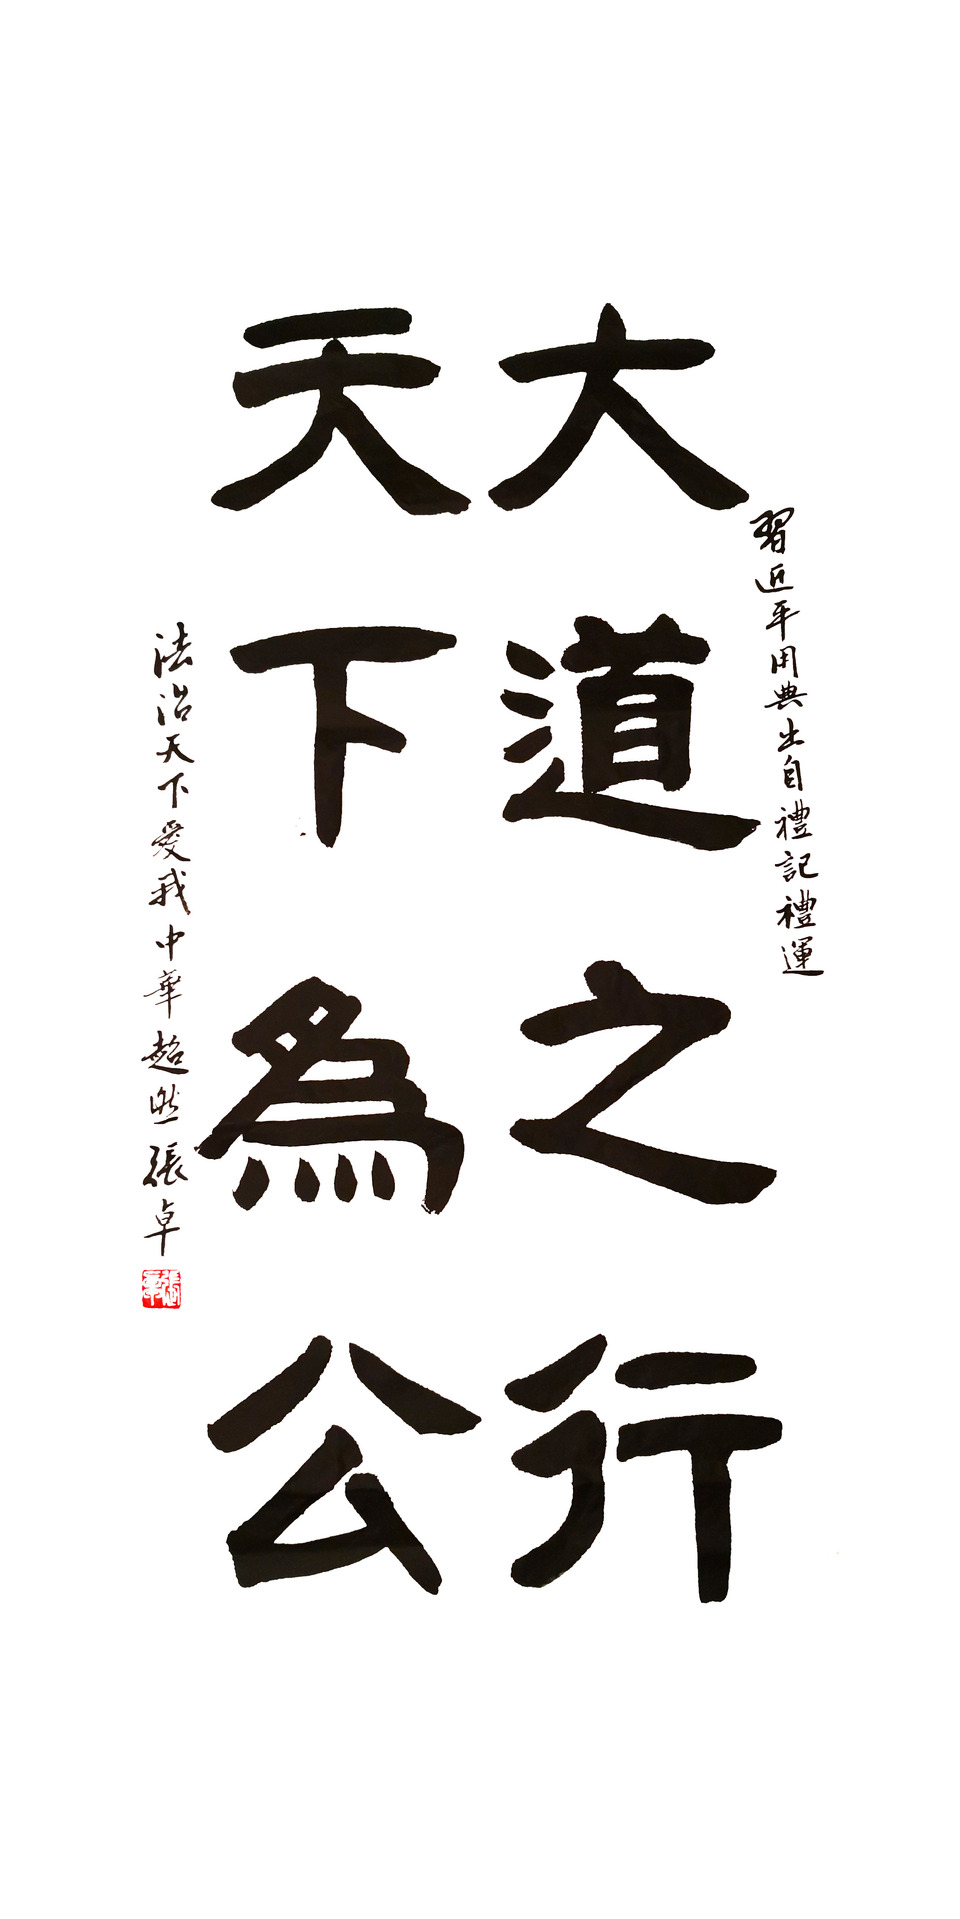 習近平用典出自禮記禮運
大道之行
天下為公
法治天下愛我中華超然張卓
張卓